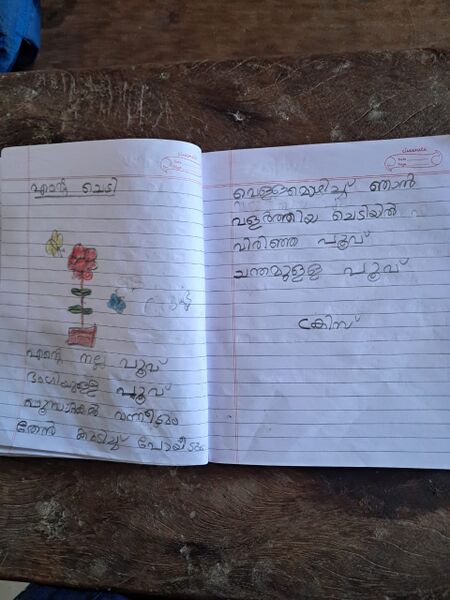 എന്റെ ചെടി
എന്റെ നല്ല പൂവ്
ഭംഗിയുള്ള പൂവ്
പൂമ്പാറ്റകൾ വന്നീടും
തേൻ കുടിച്ച് പോയീടും
classmate
Date
Page
വെള്ളമൊഴിച്ച് ഞാൻ
വളർത്തിയ ചെടിയിൽ
വിരിഞ്ഞ പൂവ്
ചന്തമുള്ള പൂവ്